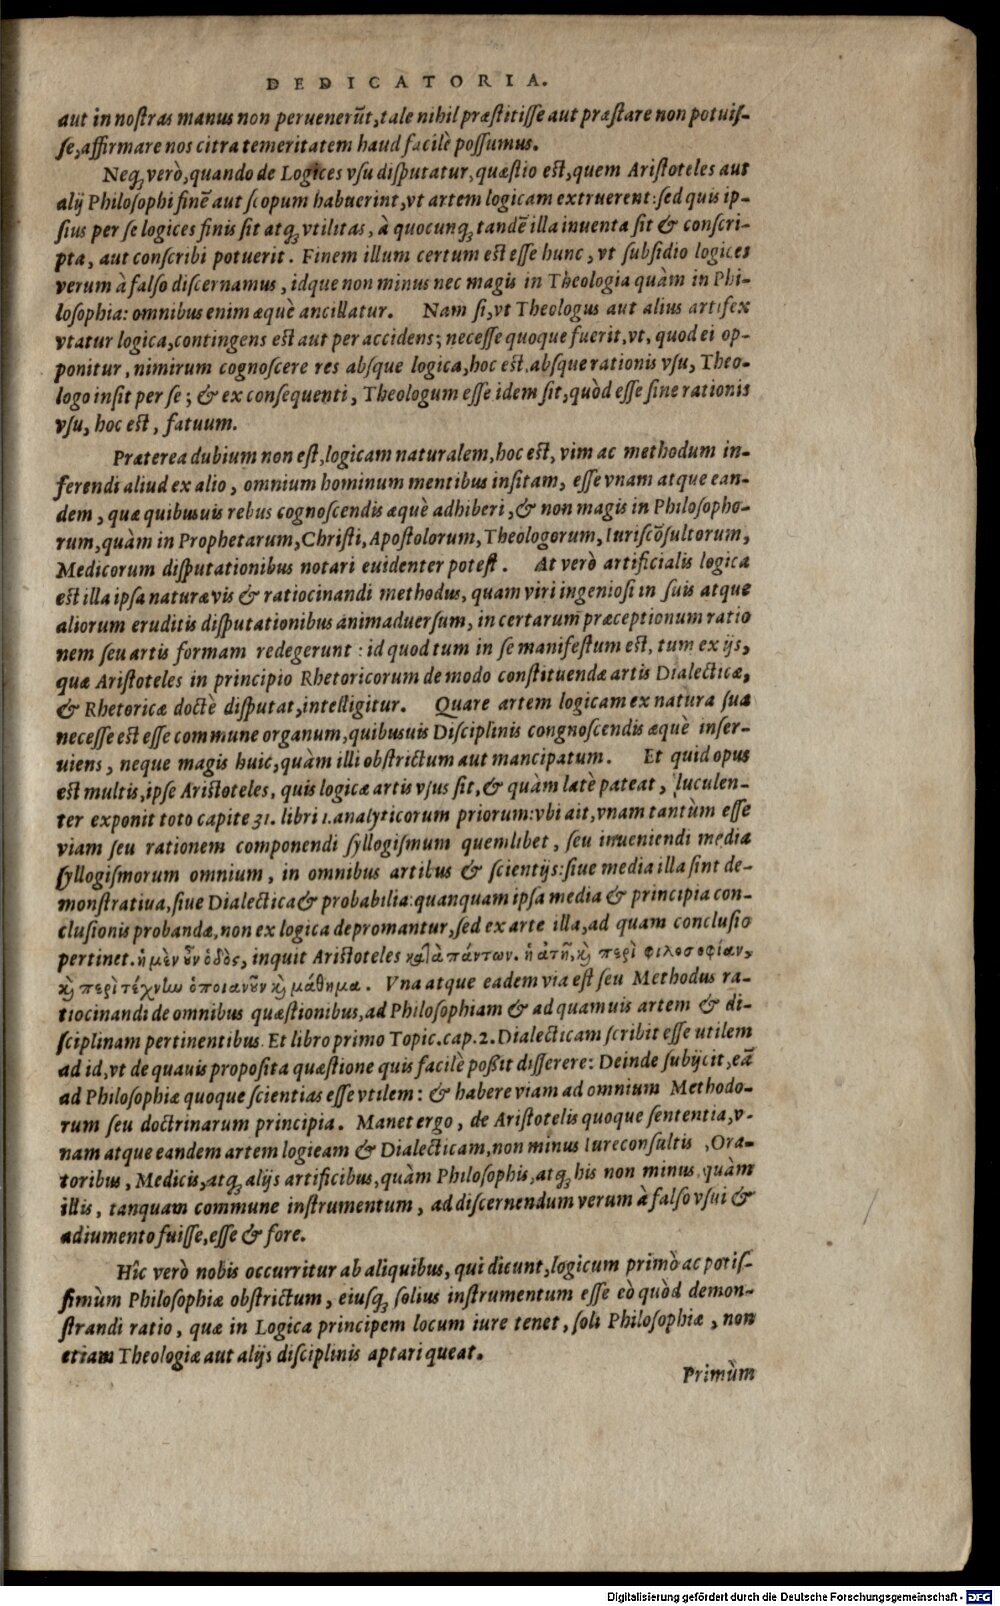 DEDICATORIA.
aut in noſtras manus non peruenerũt, tale nihil præſtitiſſe aut præſtare non potuiſ-
ſe, affirmare nos citra temeritatem haud facilè poſſumus.
Neqꝫ verò, quando de Logices vſu diſputatur, quæſtio eſt, quem Ariſtoteles aut
alij Philoſophi finẽ aut ſcopum habuerint, vt artem logicam extruerent: ſed quis ip-
ſius per ſe logices finis ſit atqꝫ vtilitas, à quocunqꝫ tandẽ illa inuenta ſit & conſcri-
pta, aut conſcribi potuerit. Finem illum certum eſt eſſe hunc, vt ſubſidio logices
verum à falſo diſcernamus, idque non minus nec magis in Theologia quàm in Phi-
loſophia: omnibus enim æquè ancillatur. Nam ſi, vt Theologus aut alius artifex
vtatur logica, contingens eſt aut per accidens; neceſſe quoque fuerit, vt, quod ei op-
ponitur, nimirum cognoſcere res abſque logica, hoc eſt, abſque rationis vſu, Theo-
logo inſit per ſe; & ex conſequenti, Theologum eſſe idem ſit, quòd eſſe ſine rationis
vſu, hoc eſt, fatuum.
Præterea dubium non eſt, logicam naturalem, hoc eſt, vim ac methodum in-
ferendi aliud ex alio, omnium hominum mentibus inſitam, eſſe vnam atque ean-
dem, quæ quibusuis rebus cognoſcendis æquè adhiberi, & non magis in Philoſopho-
rum, quàm in Prophetarum, Chriſti, Apoſtolorum, Theologorum, Iuriſcõſultorum,
Medicorum diſputationibus notari euidenter poteſt. At verò artificialis logica
eſt illa ipſa naturæ vis & ratiocinandi methodus, quam viri ingenioſi in ſuis atque
aliorum eruditis diſputationibus animaduerſum, in certarum præceptionum ratio
nem ſeu artis formam redegerunt: id quod tum in ſe manifeſtum eſt, tum ex ijs,
quæ Ariſtoteles in principio Rhetoricorum de modo conſtituendæ artis Dialecticæ,
& Rhetoricæ doctè diſputat, intelligitur. Quare artem logicam ex natura ſua
neceſſe eſt eſſe commune organum, quibusuis Diſciplinis congnoſcendis æquè inſer-
uiens, neque magis huic, quàm illi obſtrictum aut mancipatum. Et quid opus
eſt multis, ipſe Ariſtoteles, quis logicæ artis vſus ſit, & quàm latè pateat, luculen-
ter exponit toto capite 31. libri 1. analyticorum priorum: vbi ait, vnam tantùm eſſe
viam ſeu rationem componendi ſyllogiſmum quemlibet, ſeu inueniendi media
ſyllogiſmorum omnium, in omnibus artibus & ſcientijs: ſiue media illa ſint de-
monſtratiua, ſiue Dialectica & probabilia: quanquam ipſa media & principia con-
cluſionis probandæ, non ex logica depromantur, ſed ex arte illa, ad quam concluſio
pertinet. ἡ μὲν οὖν ὁδὸς, inquit Ariſtoteles κατὰ πάντων. ἡ ἀτὴ, καὶ περὶ φιλοσοφίαν,
καὶ περὶ τέχνην ὁποιανοῦν καὶ μάθημα. Vna atque eadem via eſt ſeu Methodus ra-
tiocinandi de omnibus quæſtionibus, ad Philoſophiam & ad quamuis artem & di-
ſciplinam pertinentibus. Et libro primo Topic. cap. 2. Dialecticam ſcribit eſſe utilem
ad id, vt de quauis propoſita quæſtione quis facilè poßit diſſerere: Deinde ſubijcit, eã
ad Philoſophiæ quoque ſcientias eſſe vtilem: & habere viam ad omnium Methodo-
rum ſeu doctrinarum principia. Manet ergo, de Ariſtotelis quoque ſententia, v-
nam atque eandem artem logieam & Dialecticam, non minus Iureconſultis, Ora-
toribus, Medicis, atqꝫ alijs artificibus, quàm Philoſophis, atqꝫ his non minus, quàm
illis, tanquam commune inſtrumentum, ad diſcernendum verum à falſo vſui &
adiumento fuiſſe, eſſe & fore.
Hîc verò nobis occurritur ab aliquibus, qui dicunt, logicum primò ac potiſ-
ſimùm Philoſophiæ obſtrictum, eiusqꝫ ſolius inſtrumentum eſſe eò quòd demon-
ſtrandi ratio, quæ in Logica principem locum iure tenet, ſoli Philoſophiæ, non
etiam Theologiæ aut alijs diſciplinis aptari queat.
Primùm
Digitalisierung gefördert durch die Deutsche Forschungsgemeinschaft - DFG